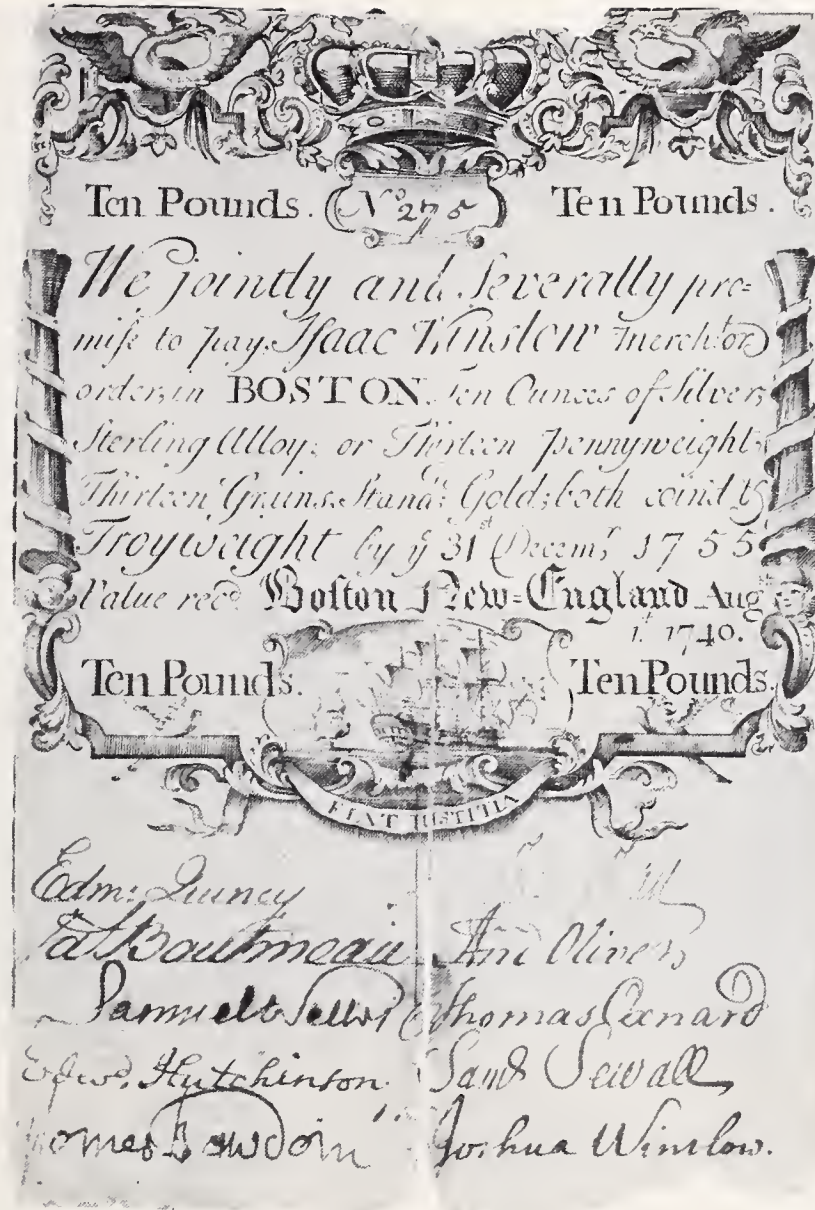 Ten Pounds. No 275 Ten Pounds.
We jointly and severally pro=
miſe to pay Iſaac Winslow Mercht or
order, in BOSTON, Ten Ounces of Silver,
Sterling Alloy; or Thirteen pennyweight
Thirteen Grains Standd Gold, both coin'd
Troyweight by ye 31st Decemr 1755
Value recd Boſton New=England Augt
1st 1740.
Ten Pounds. Ten Pounds.
FIAT JUSTITIA
Edm: Quincy
Boutineau And Oliver
Samuel Thomas Oxnard
Edwd. Hutchinson Saml Sewall
James Bowdoin Joshua Winslow.